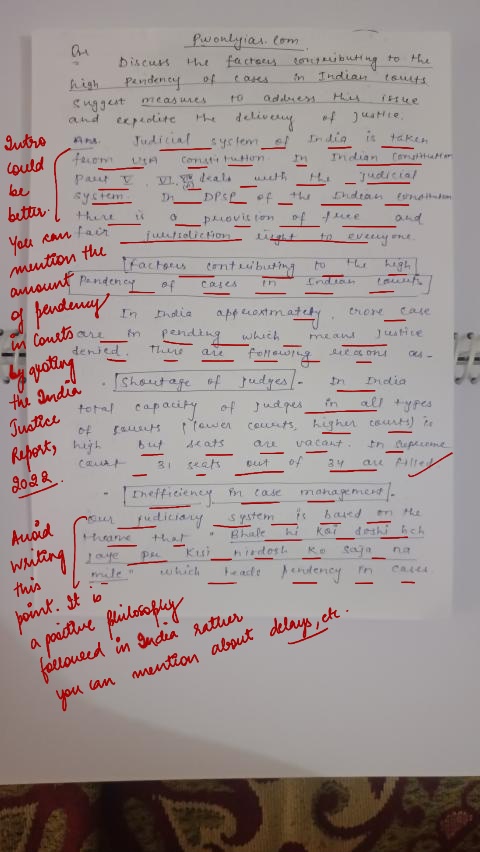 Pwonlyias.com
Qn Discuss the factors contributing to the
high pendency of cases in Indian courts
Suggest measures to address this issue
and expedite the delivery of justice.
Ans. Judicial system of India is taken
from USA constitution. In Indian constitution
Part V, VI, deals with the judicial
system. In DPSP of the Indian constitution
there is a provision of free and
fair jurisdiction right to everyone.
Factors contributing to the high
Pendency of cases in Indian courts
In India approxmately, crore case
are in pending which means justice
denied. There are following reasons as-
Shoutage of Judges - In India
total capacity of Judges in all types
of courts (lower courts, higher courts) is
high but seats are vacant. In supreme
court 31 seats out of 34 are filled
Inefficiency in case management -
Our judiciary system is based on the
theme that "Bhale hi koi doshi hch
jaye per kisi nirdosh ko saja na
mile" which leads pendency in cases.
Intro
could
be
better.
You can
mention the
amount
of pendency
in courts
by quoting
the India
Justice
Report,
2022.
Avoid
writing
this
point. It is
a positive philosophy
followed in India rather
you can mention about delays, etc.